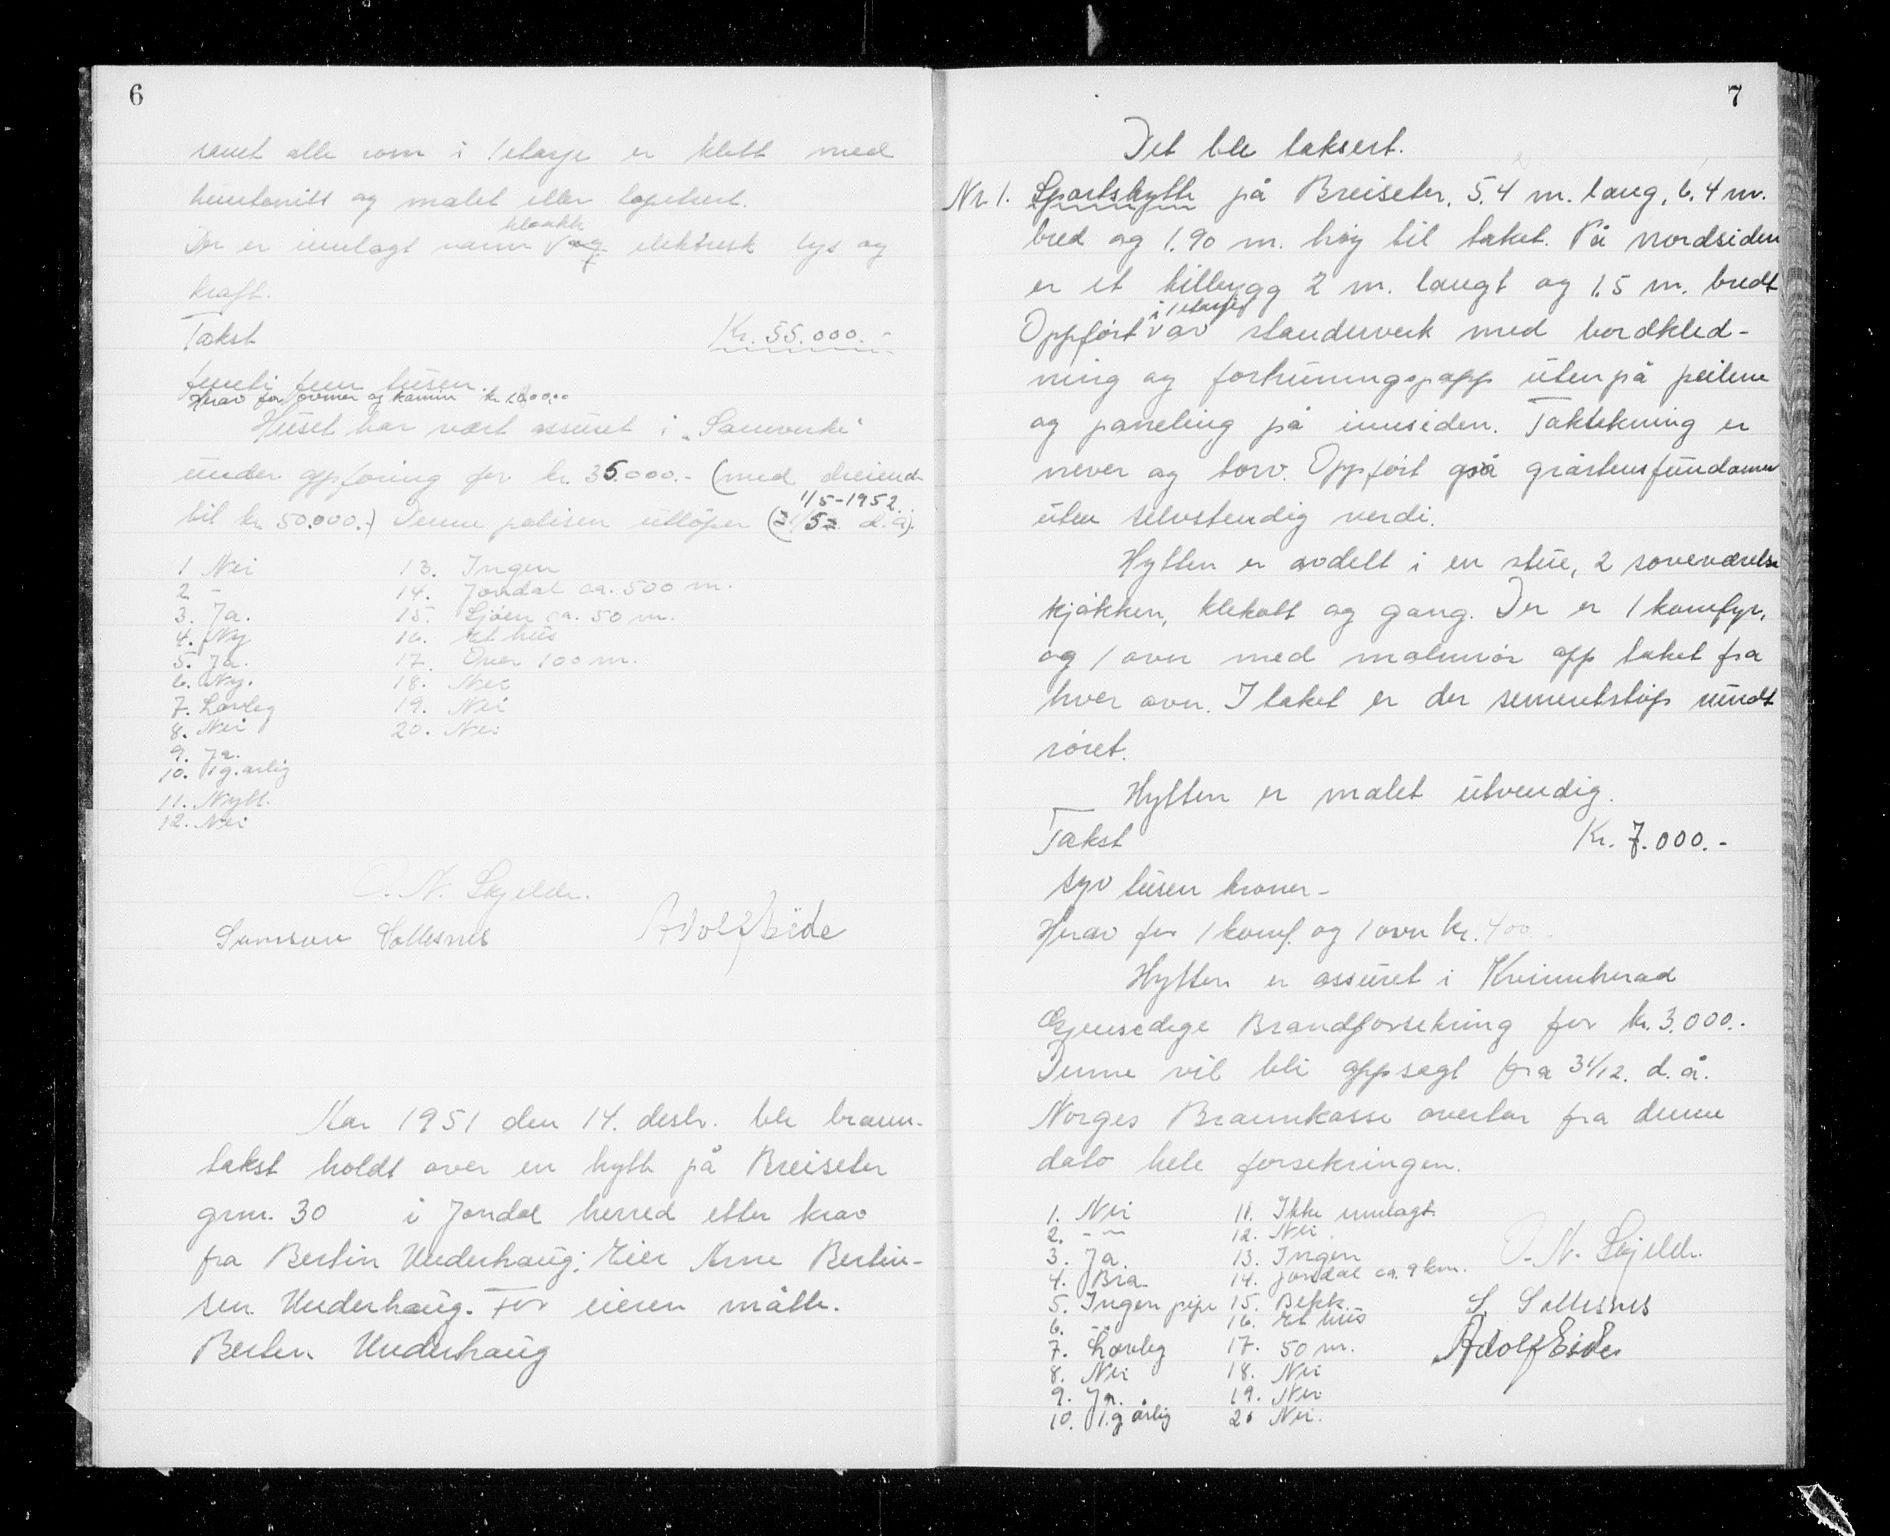 6
samt alle rom i 1 etasje er kledt med
huntonitt og malet eller tapetsert.
kloakk
Der er innlagt vann og elektrisk lys og
kraft.
Takst Kr. 55.000.-
femti fem tusen.
Herav for ovner og kamin kr
Huset har vært assuret i "Samvirke"
under oppføring for kr. 35.000.- (med
1/5-1952.
til kr. 50.000.-) Denne polisen utløper d.å).
1 Nei 13. Ingen
2 - 14. Jondal ca. 500 m.
3. Ja. 15. Sjøen ca. 50 m.
4. Ny 16. Et hus
5. Ja. 17. Over 100 m.
6. Ny. 18. Nei
7. Lovleg 19. Nei
8. Nei 20. Nei
9. Ja.
10. 1 g. årlig
11. Nytt.
12. Nei
N. Skjelde.
Samson Sollesnes Adolf Eide
Aar 1951 den 14. desbr. ble brann-
takst holdt over en hytte på Breiseter
grnr. 30 i Jondal herred etter krav
fra Bertin Underhaug; Eier Arne Bertin-
sen Underhaug. For eieren møtte.
Berten Underhaug
7
Det ble taksert.
Nr. 1. Sportshytte på Breiseter, 5.4 m. lang, 6,4 m.
bred og 1.90 m. høg til taket. På nordsiden
er et tilbygg 2 m. langt og 1.5 m. bredt
i 1 etasje
Oppført av standerverk med bordkled-
ning og forhuningspapp utenpå peilene
og paneling på innsiden. Taktekning er
never og torv. Oppført på gråstensfundament
uten selvstendig verdi.
Hytten er avdelt i en stue, 2 soveværelse
kjøkken, klekott og gang. Der er 1 komfyr,
og 1 ovn med malmrør opp taket fra
hver ovn. I taket er der sementstøp rundt
røret.
Hytten er malet utvendig.
Takst Kr. 7.000.-
syv tusen kroner-
Herav for 1 komf. og 1 ovn kr. 400
Hytten er assuret i Kvinnherad
Gjensidige Brandforsekring for kr. 3.000.-
Denne vil bli oppsagt fra 31/12. d.å.
Norges Brannkasse overtar fra denne
dato hele forsekringen.
1. Nei 11. Ikke innlagt.
2. - 12. Nei.
3. Ja. 13. Ingen
4. Bra 14. Jondal ca. 9 km.
5. Ingen pipe 15. Bekk.
6. - 16. Et hus
7. Lovleg 17. 50 m.
8. Nei 18. Nei
9. Ja. 19. Nei
10. 1. g årlig 20 Nei.
O. N. Skjelde.
S. Sollesnes
Adolf Eide